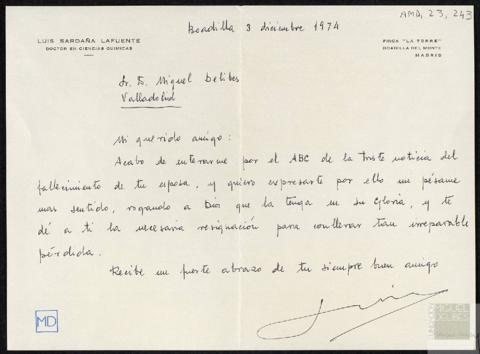 AMD, 23, 243
Boadilla 3 diciembre 1974
LUIS SARDAÑA LAFUENTE
DOCTOR EN CIENCIAS QUIMICAS
FINCA "LA TORRE"
BOADILLA DEL MONTE
MADRID
Sr. D. Miguel Delibes
Valladolid
Mi querido amigo:
Acabo de enterarme por el ABC de la triste noticia del
fallecimiento de tu esposa, y quiero expresarte por ello mi pésame
mas sentido, rogando a Dios que la tenga en su Gloria, y te
dé a ti la necesaria resignación para conllevar tan irreparable
pérdida.
Recibe un fuerte abrazo de tu siempre buen amigo
MD
FUNDACIÓN
MIGUEL
DELIBES